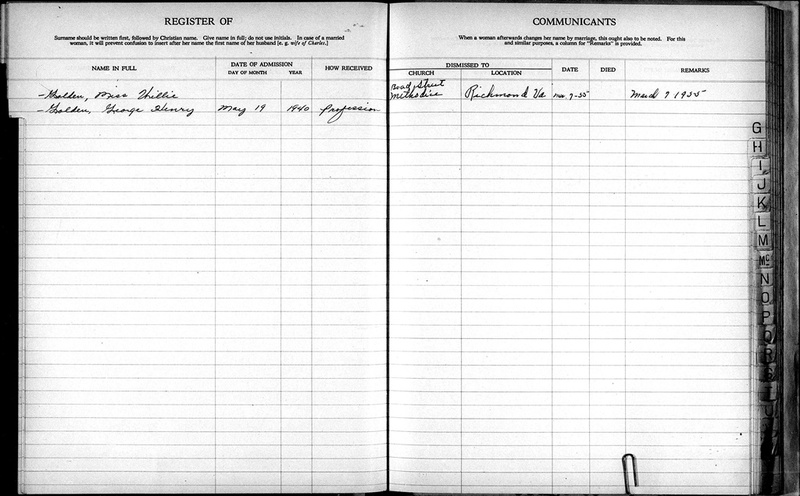 REGISTER OF
Surname should be written first, followed by Christian name. Give name in full; do not use initials. In case of a married
woman, it will prevent confusion to insert after her name the first name of her husband [e. g. wife of Charles.]
NAME IN FULL
DATE OF ADMISSION
DAY OF MONTH
YEAR
HOW RECEIVED
-Golden, Miss Willie
-Golden, George Henry May 19 1940 Profession
COMMUNICANTS
When a woman afterwards changes her name by marriage, this ought also to be noted. For this
and similar purposes, a column for "Remarks" is provided.
DISMISSED TO
CHURCH
LOCATION
DATE
DIED
REMARKS
Broad Street
Methodist Richmond Va Mar. 7-55 March 7 1955
G
H
I
J
K
L
M
Mc
N
O
P
Q
R
S